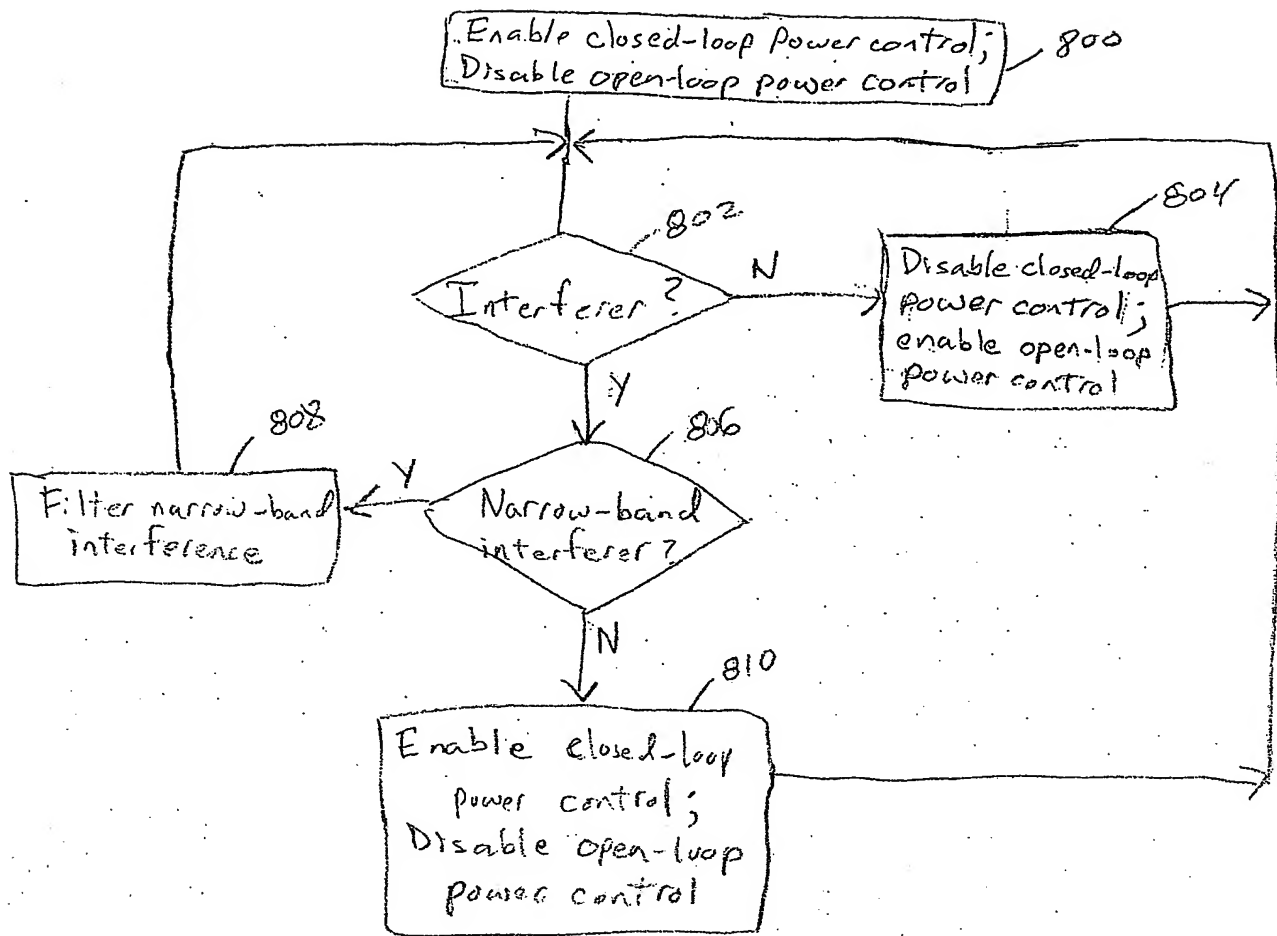 Enable closed-loop power control;
Disable open-loop power control
800
802
Interferer?
N
804
Disable closed-loop
power control;
enable open-loop
power control
Y
806
Narrow-band
interferer?
Y
808
Filter narrow-band
interference
N
810
Enable closed-loop
power control;
Disable open-loop
power control